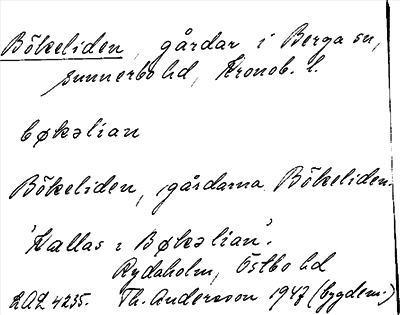 Bökeliden, gårdar i Berga sn,
Sunnerbo hd, Kronob. l.
bøkəlian
Bökeliden, gårdarna Bökeliden.
'Kallas i Bøkəlian'.
Rydaholm, Östbo hd
LAL 4235. Th. Andersson 1947 (bygdem.)